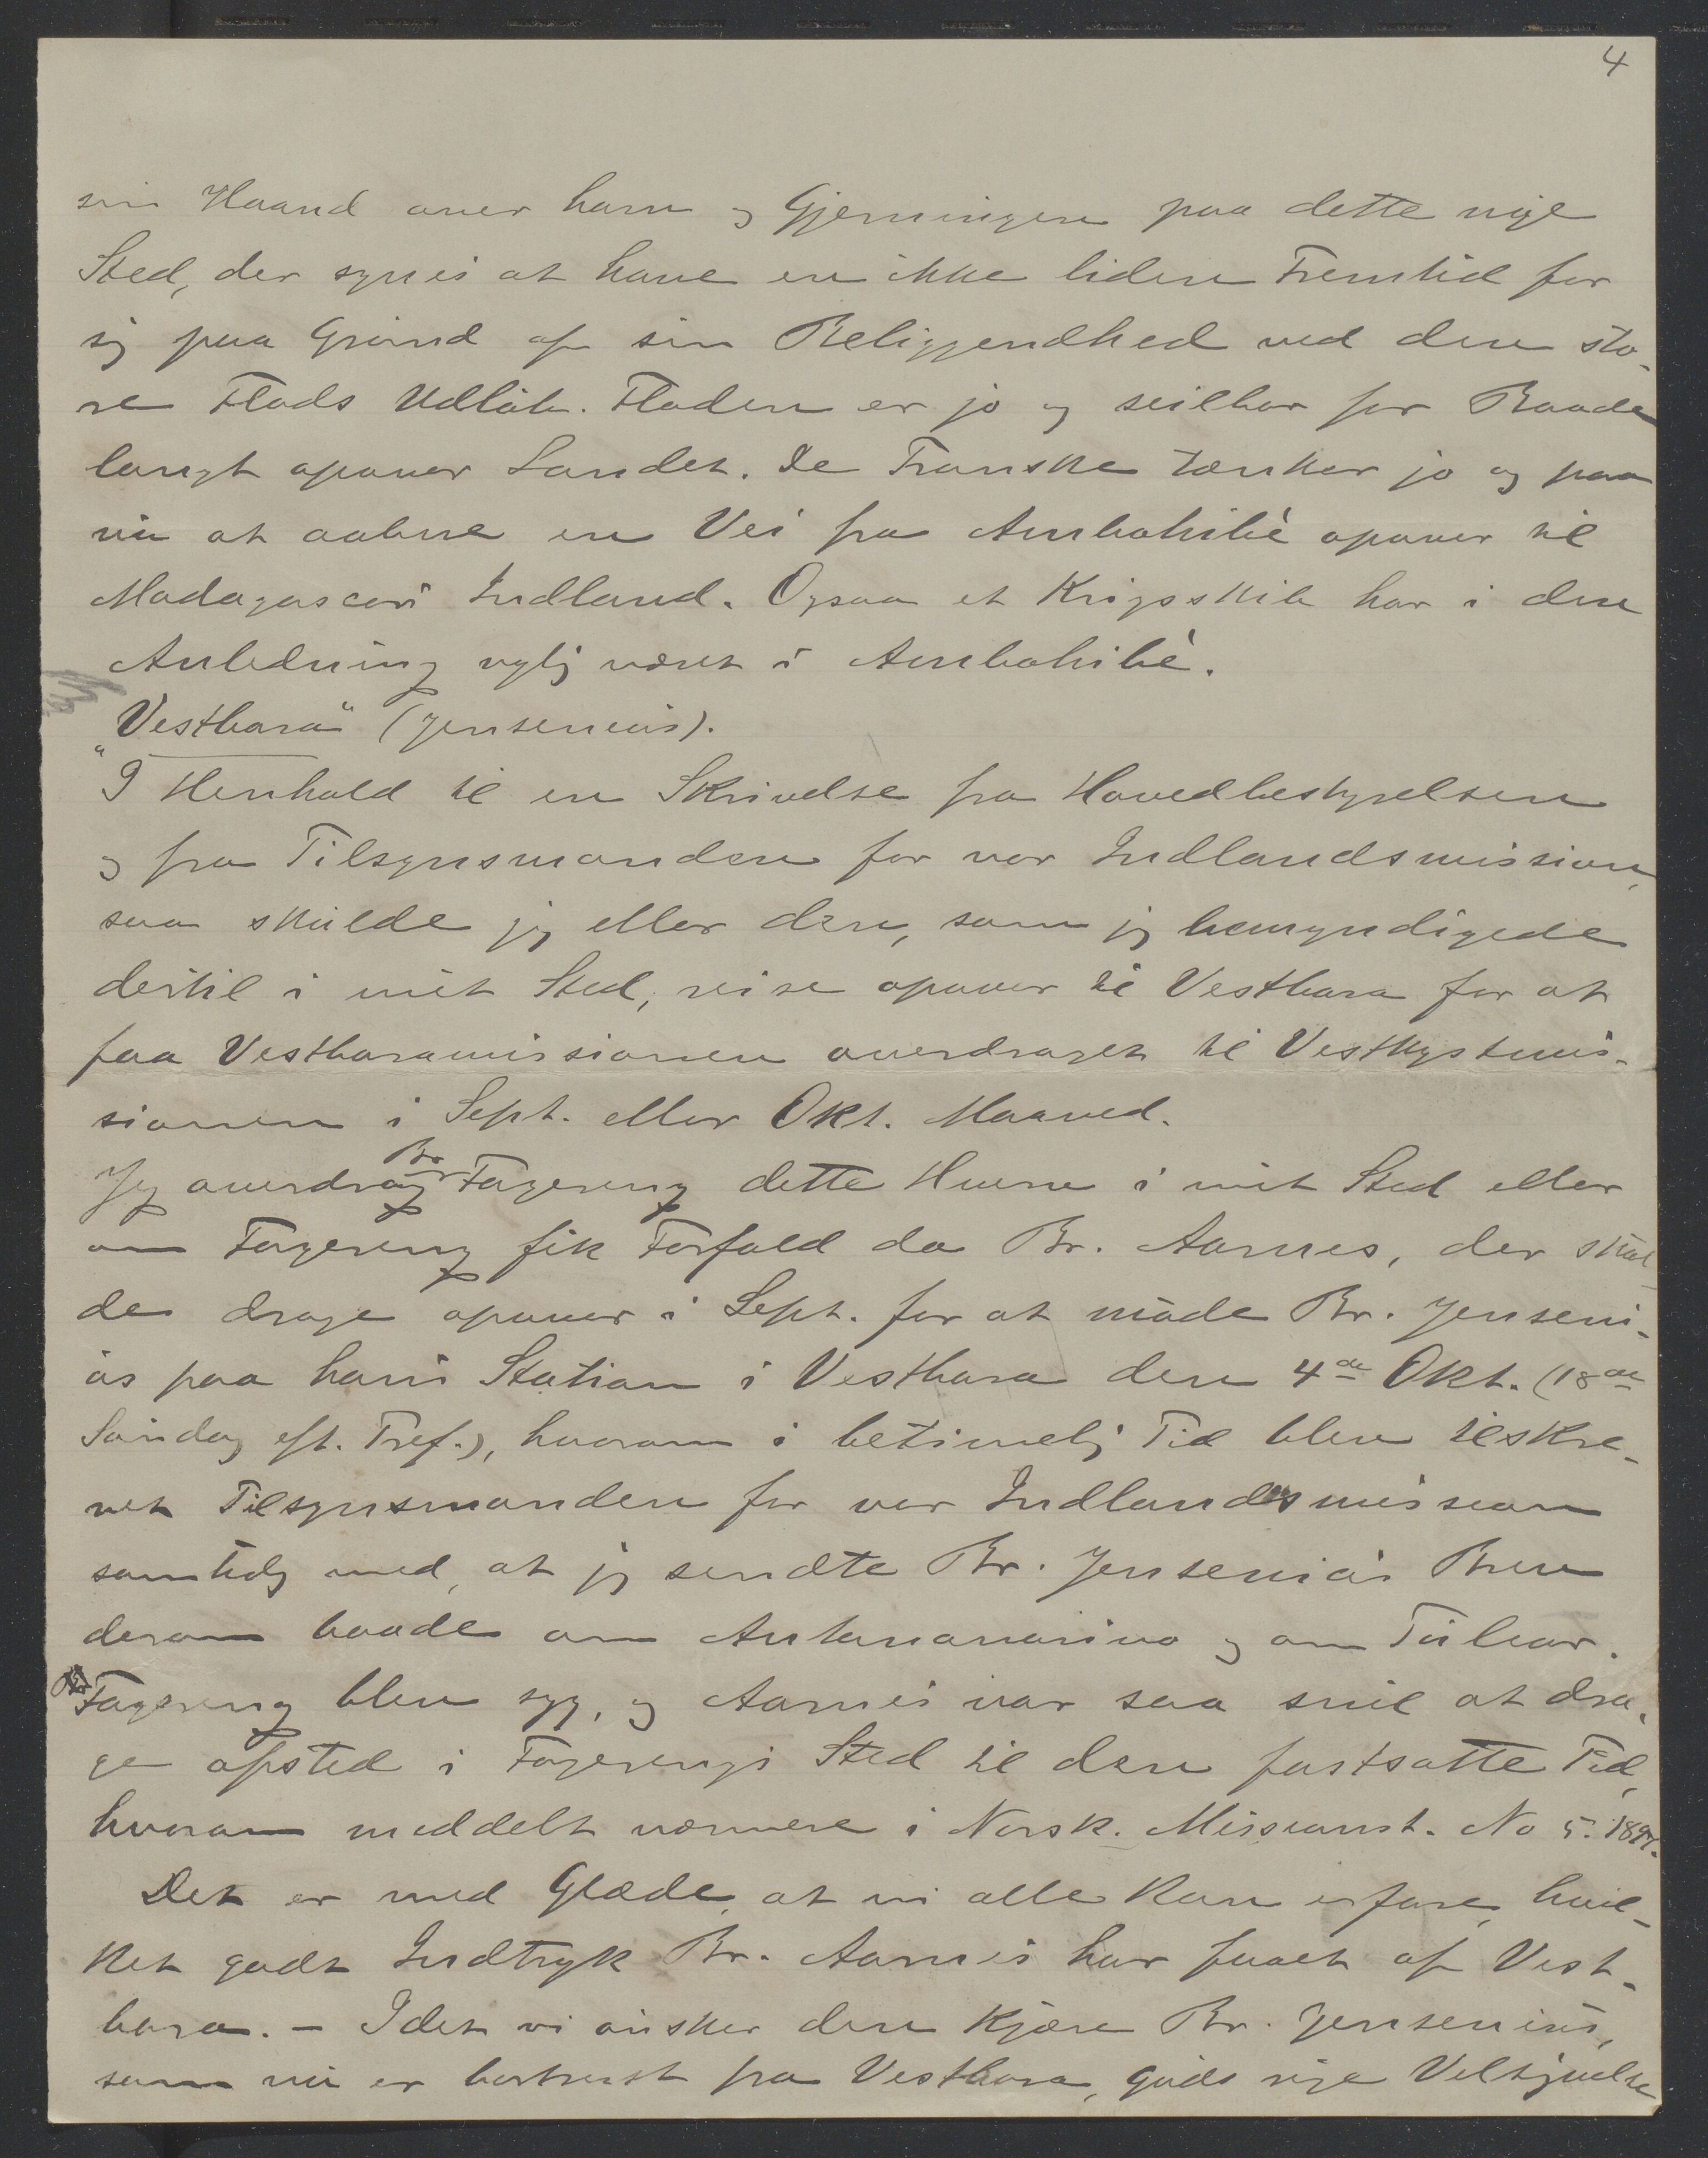 4
sin Haand over ham og Gjerningen paa dette nye
Sted, der synes at have en ikke liden Fremtid for
sig paa Grund af sin Beliggendhed ved den sto-
re Flods Udløb. Floden er jo og seilbar for Baade
langt opover Landet. De Franske tænker jo og paa
nu at aabne en Vei fra Ambohibé opover til
Madagascars Indland. Ogsaa et Krigsskib har i den
Anledning nylig været i Ambohibé.
"Vestbara" (Jensenius).
I Henhold til en Skrivelse fra Hovedbestyrelsen
og fra Tilsynsmanden for vor Indlandsmission,
saa skulde jeg eller den, som jeg bemyndigede
dertil i mit Sted, reise opover til Vestbara for at
faa Vestbaramissionen overdraget til Vestkystmis-
sionen i Sept. eller Okt. Maaned.
Jeg overdrog Br. Fagereng dette Hverv i mit Sted eller
om Fagereng fik Forfald da Br. Aarnes, der skul-
de drage opover i Sept. for at møde Br. Jenseni-
us paa hans Station i Vestbara den 4de Okt. (18de
Søndag eft. Tref.), hvorom i betimelig Tid blev tilskre-
vet Tilsynsmanden for vor Indlandsmission
samtidig med, at jeg sendte Br. Jensenius Brev
derom baade om Antananarivo og om Tulear.
Fagereng blev syg, og Aarnes var saa snil at dra-
ge afsted i Fagerengs Sted til den fastsatte Tid,
hvorom meddelt nærmere i Norsk. Missionst. No 5. 1897.
Det er med Glæde, at vi alle kan erfare, hvil-
ket godt Indtryk Br. Aarnes har faaet af Vest-
bara. – Idet vi ønsker den kjære Br. Jensenius,
som nu er bortreist fra Vestbara, Guds rige Velsignelse